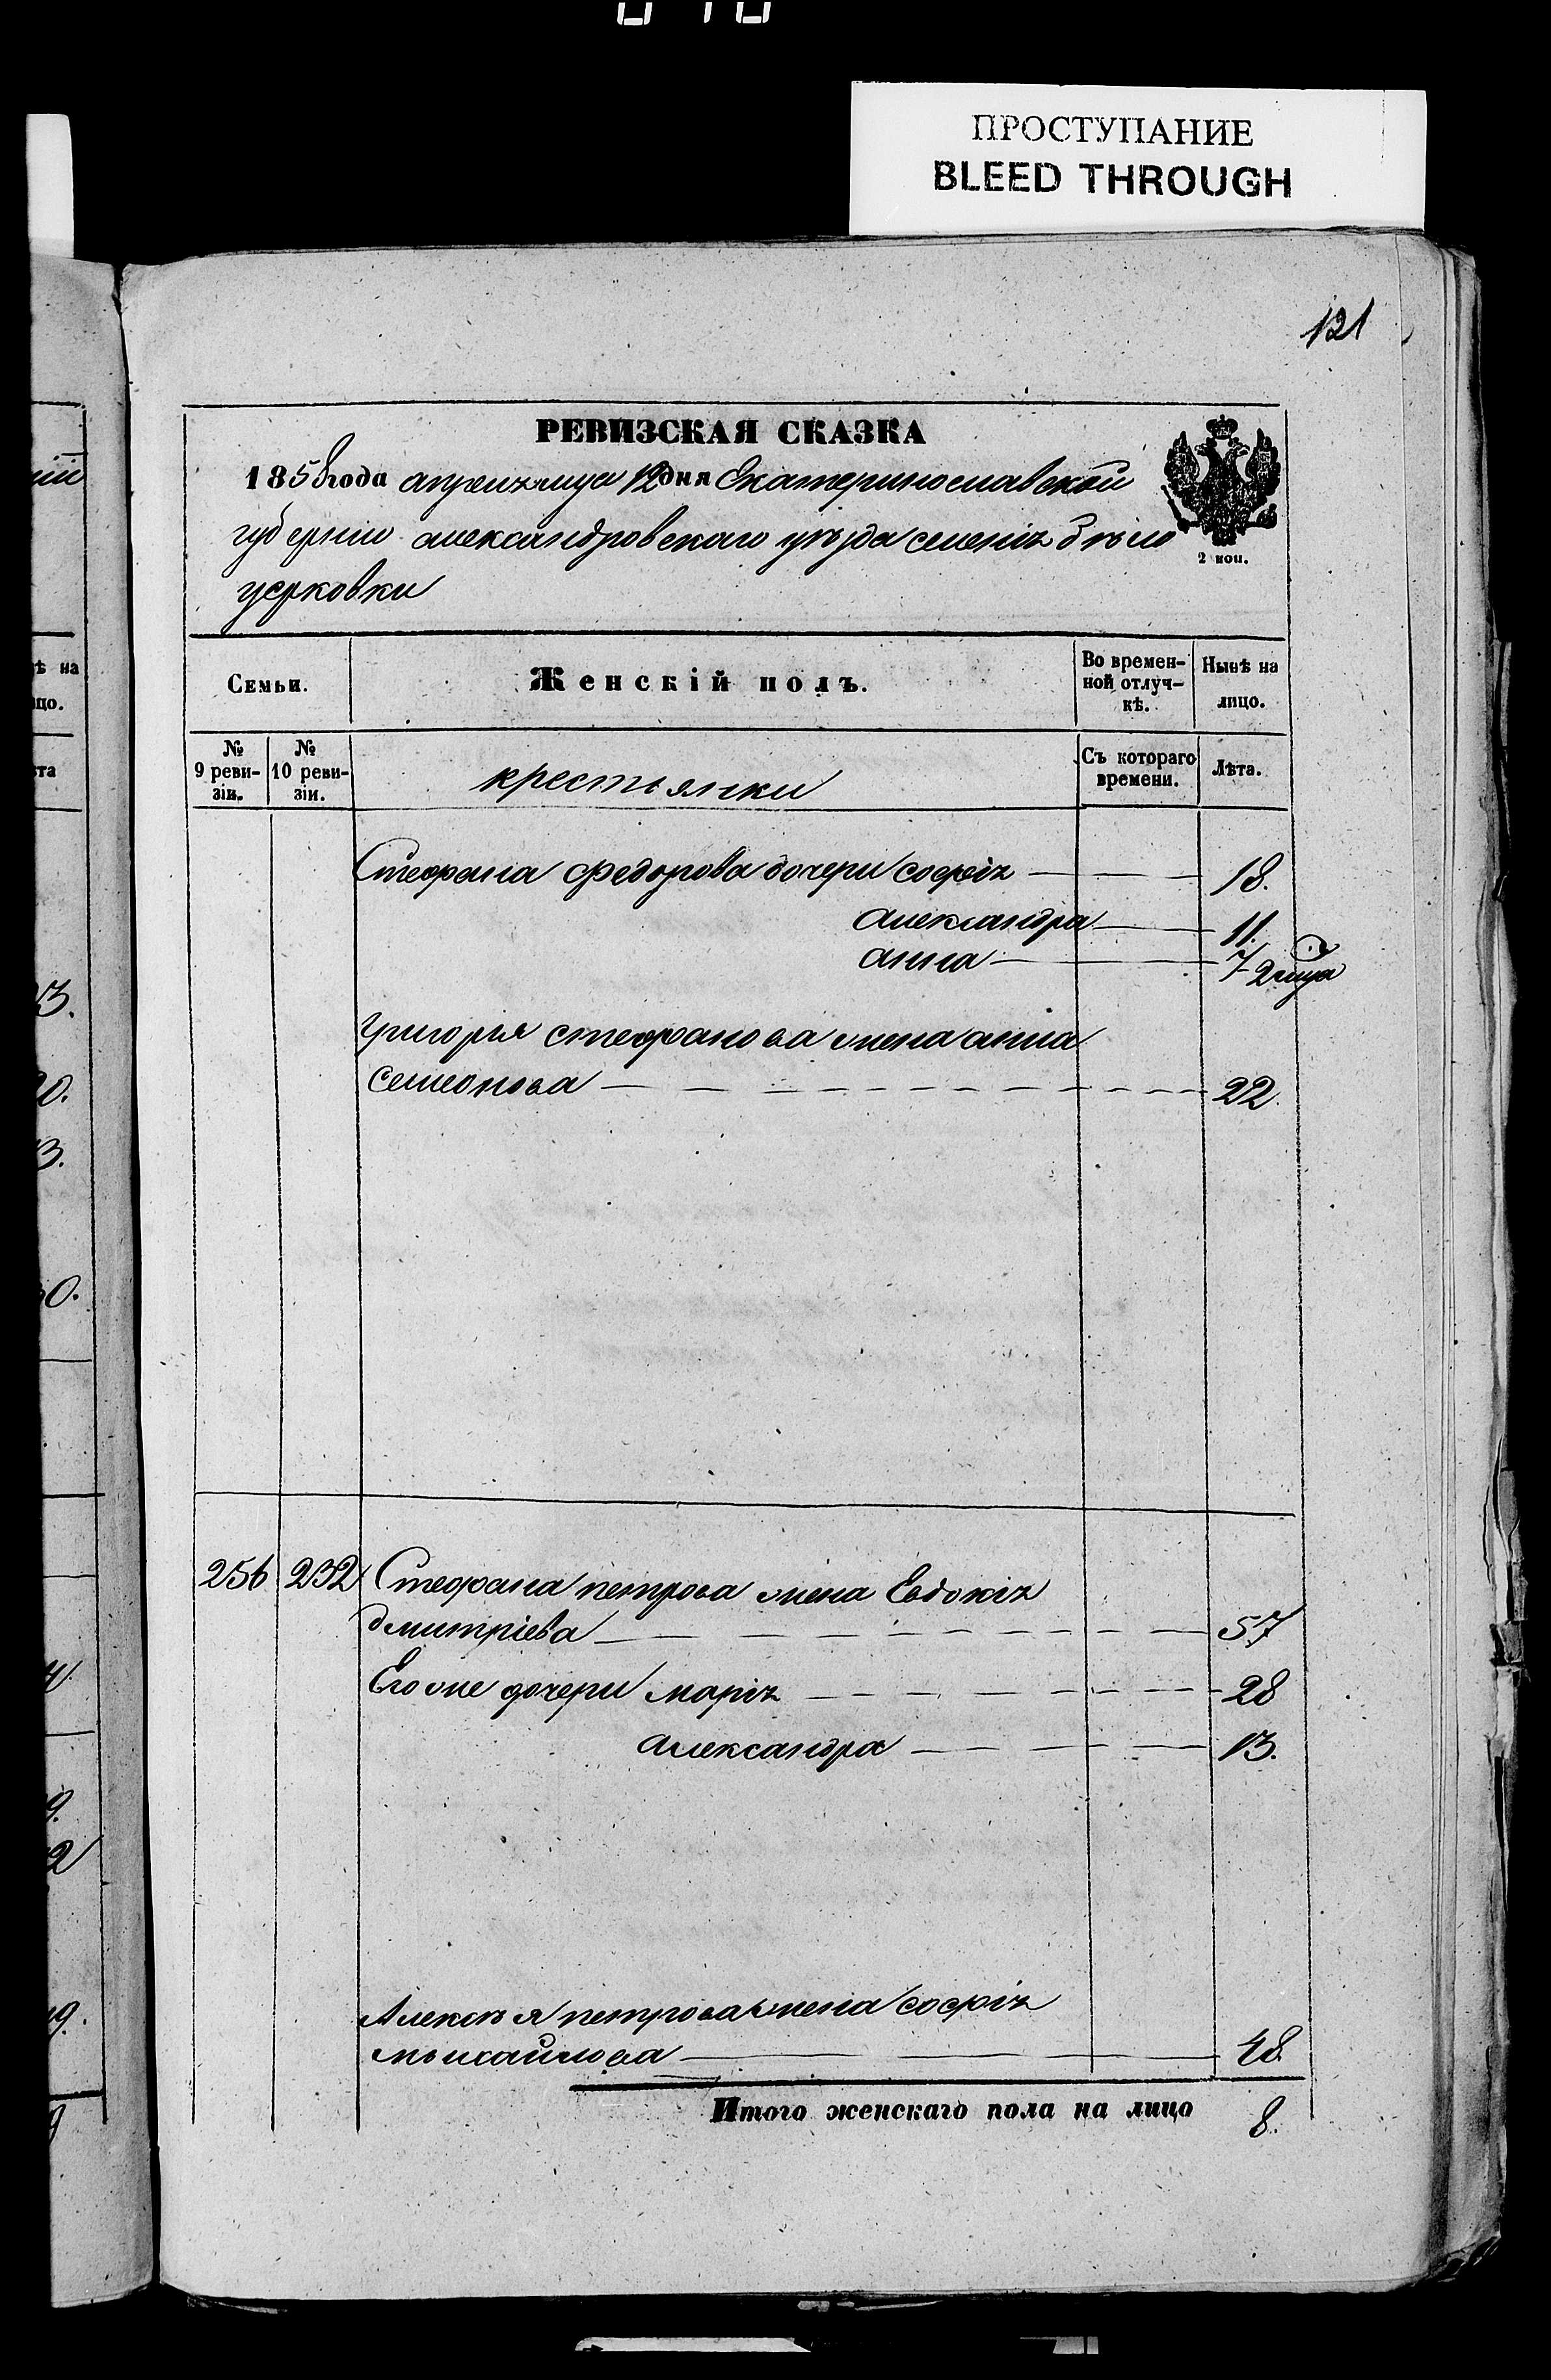 ПРОСТУПАНИЕ
BLEED THROUGH
121
РЕВИЗСКАЯ СКАЗКА
1858 года апреля мца 12 дня Екатеринославской
губерніи александровскаго уѣзда селенія бѣло
церковки
2 коп.
Семьи. Женскій полъ. Во времен-ной отлуч-кѣ. Нынѣ на лицо.
№ 9 реви-зіи. № 10 реви-зіи. крестьянки Съ котораго времени. Лѣта.
Стефана Федорова дочери софія 18.
александра 11.
анна 7 2 мца
григорія стефанова жена анна
семеонова 22.
256 232 Стефана петрова жена Евдокія
дмитріева 57
Его же дочери марія 28
александра 13.
Алексѣя петрова жена софія
михайлова 48.
Итого женскаго пола на лицо 8.